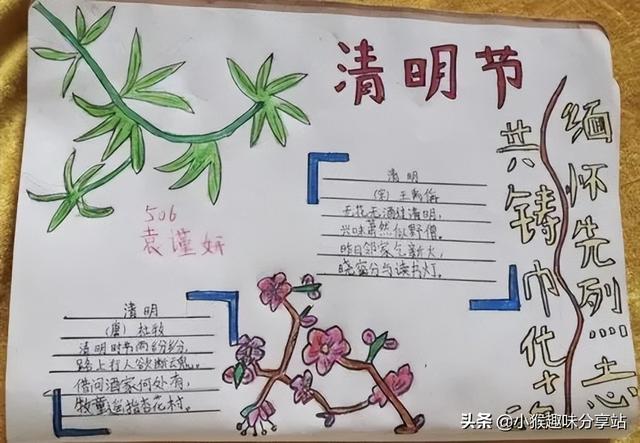 清明节
缅怀先烈志
共铸巾化
506
袁谨妍
清明
(宋)王禹偁
无花无酒过清明,
兴味萧然似野僧。
昨日邻家乞新火,
晓窗分与读书灯。
清明
(唐)杜牧
清明时节雨纷纷,
路上行人欲断魂。
借问酒家何处有,
牧童遥指杏花村。
头条 @小猴趣味分享站